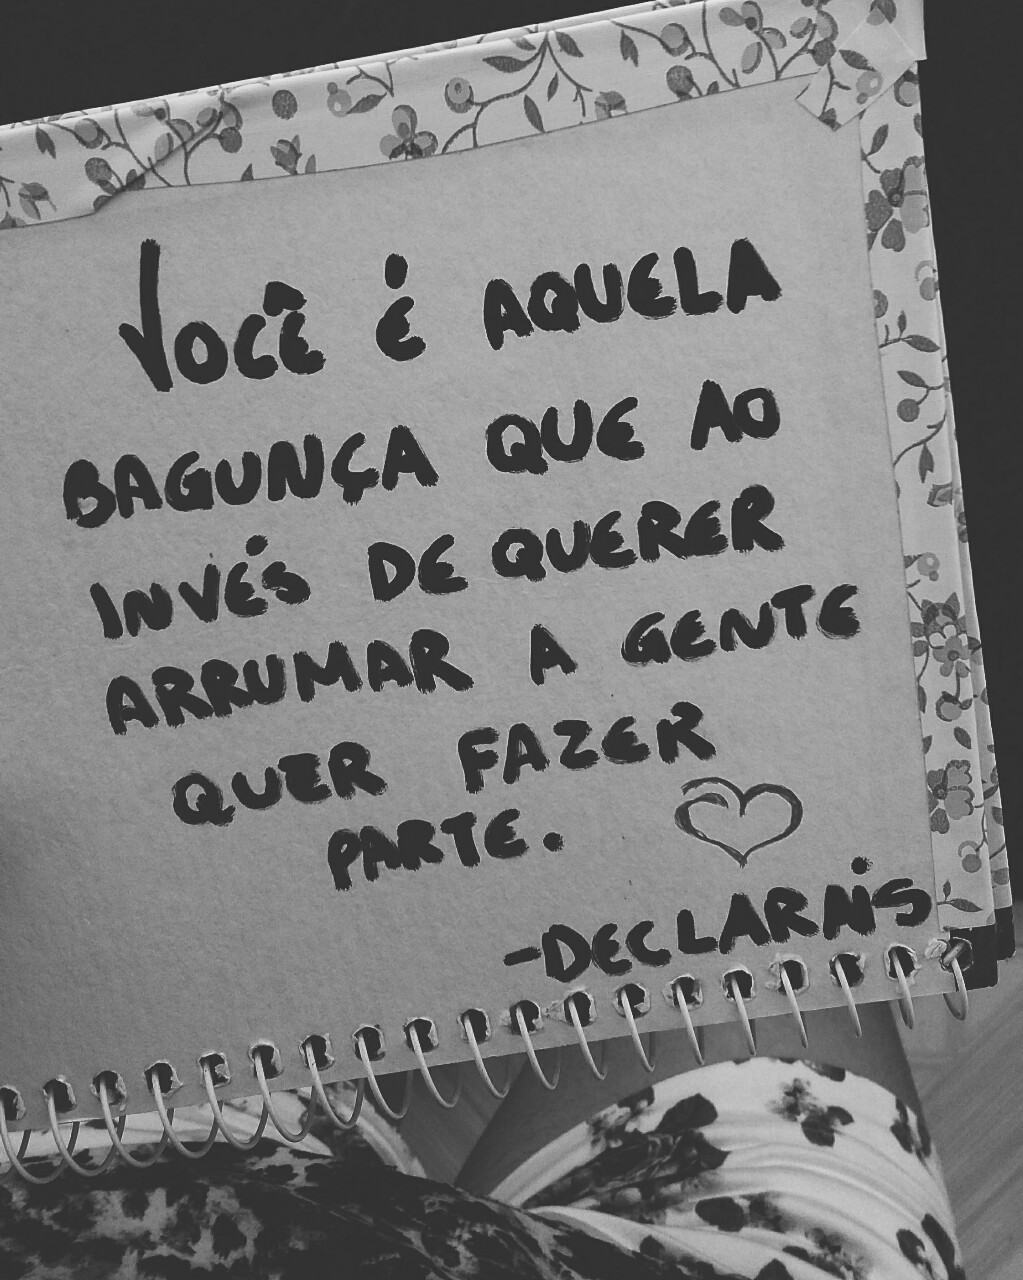 VOCÊ É AQUELA
BAGUNÇA QUE AO
INVÉS DE QUERER
ARRUMAR A GENTE
QUER FAZER
PARTE.
-DECLARAIS